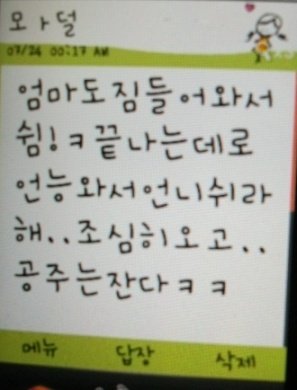 모ㅏ덜
07/24 00:17 AM
엄마도짐들어와서
쉼!ㅋ끝나는데로
언능와서언니쉬라
해..조심히오고..
공주는잔다ㅋㅋ
메뉴 답장 삭제